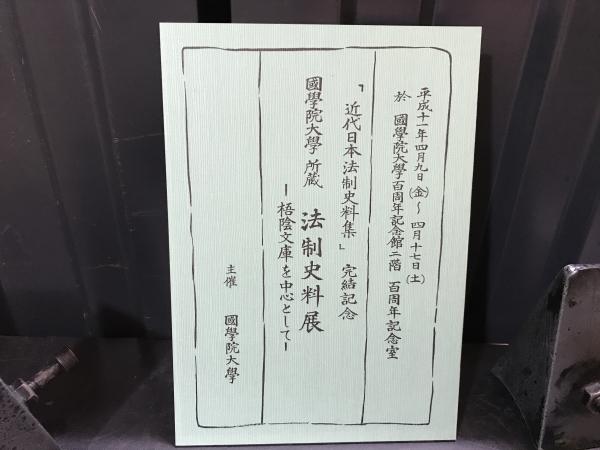 平成十一年四月九日(金)～四月十七日(土)
於 國學院大學百周年記念館二階 百周年記念室
『近代日本法制史料集』完結記念
國學院大學所蔵 法制史料展
ー梧陰文庫を中心としてー
主催 國學院大學